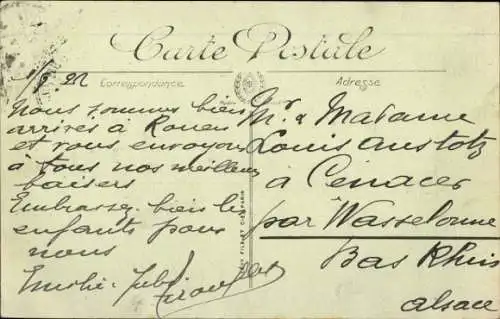 Carte Postale
Correspondance
Adresse
1/9.22
Nous sommes bien
arrivés à Rouen
et vous envoyons
à tous nos meilleurs
baisers
Embrassez bien les
enfants pour
nous
Mr & Madame
Louis
à
par Wasselonne
Bas Rhin
Alsace